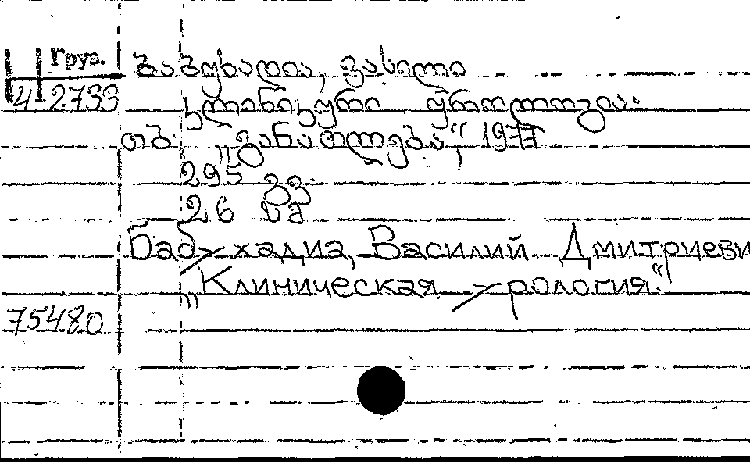 Груз.
ბაბუხადია, ვასილი
4-2733
კლინიკური უროლოგია.
თბ. „განათლება“, 1977
295 გვ.
26 სმ
Бабухадиа, Василий Дмитриеви
„Клиническая урология.“
75480